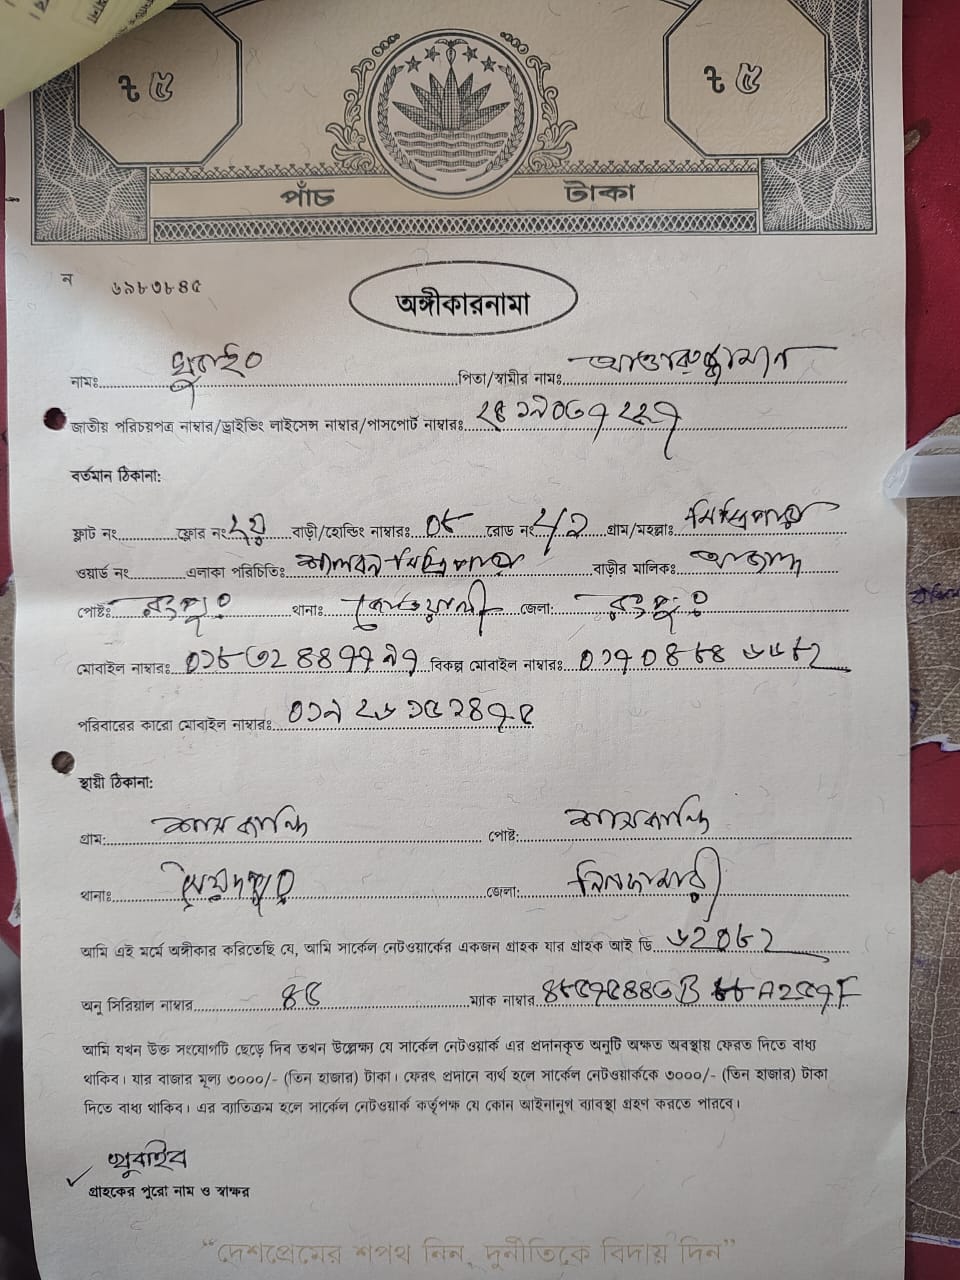 ৳ ৫ ৳ ৫
পাঁচ টাকা
ন ৬৯৮৩৮৪৫
অঙ্গীকারনামা
নামঃ পিতা/স্বামীর নামঃ
জাতীয় পরিচয়পত্র নাম্বার/ড্রাইভিং লাইসেন্স নাম্বার/পাসপোর্ট নাম্বারঃ
বর্তমান ঠিকানা:
ফ্লাট নং ফ্লোর নং ২য় বাড়ী/হোল্ডিং নাম্বারঃ ০৮ রোড নং গ্রাম/মহল্লাঃ মিস্ত্রিপাড়া
ওয়ার্ড নং এলাকা পরিচিতিঃ মিস্ত্রিপাড়া বাড়ীর মালিকঃ
পোষ্টঃ রংপুর থানাঃ কোতয়ালী জেলা: রংপুর
মোবাইল নাম্বারঃ বিকল্প মোবাইল নাম্বারঃ
পরিবারের কারো মোবাইল নাম্বারঃ
স্থায়ী ঠিকানা:
গ্রাম: পোষ্ট:
থানাঃ সৈয়দপুর জেলা: নিলফামারী
আমি এই মর্মে অঙ্গীকার করিতেছি যে, আমি সার্কেল নেটওয়ার্কের একজন গ্রাহক যার গ্রাহক আই ডি
অনু সিরিয়াল নাম্বার ৪৫ ম্যাক নাম্বার
আমি যখন উক্ত সংযোগটি ছেড়ে দিব তখন উল্লেক্ষ্য যে সার্কেল নেটওয়ার্ক এর প্রদানকৃত অনুটি অক্ষত অবস্থায় ফেরত দিতে বাধ্য
থাকিব। যার বাজার মূল্য ৩০০০/- (তিন হাজার) টাকা। ফেরৎ প্রদানে ব্যর্থ হলে সার্কেল নেটওয়ার্ককে ৩০০০/- (তিন হাজার) টাকা
দিতে বাধ্য থাকিব। এর ব্যতিক্রম হলে সার্কেল নেটওয়ার্ক কর্তৃপক্ষ যে কোন আইনানুগ ব্যাবস্থা গ্রহণ করতে পারবে।
খুবাইব
গ্রাহকের পুরো নাম ও স্বাক্ষর
"দেশপ্রেমের শপথ নিন, দুর্নীতিকে বিদায় দিন"